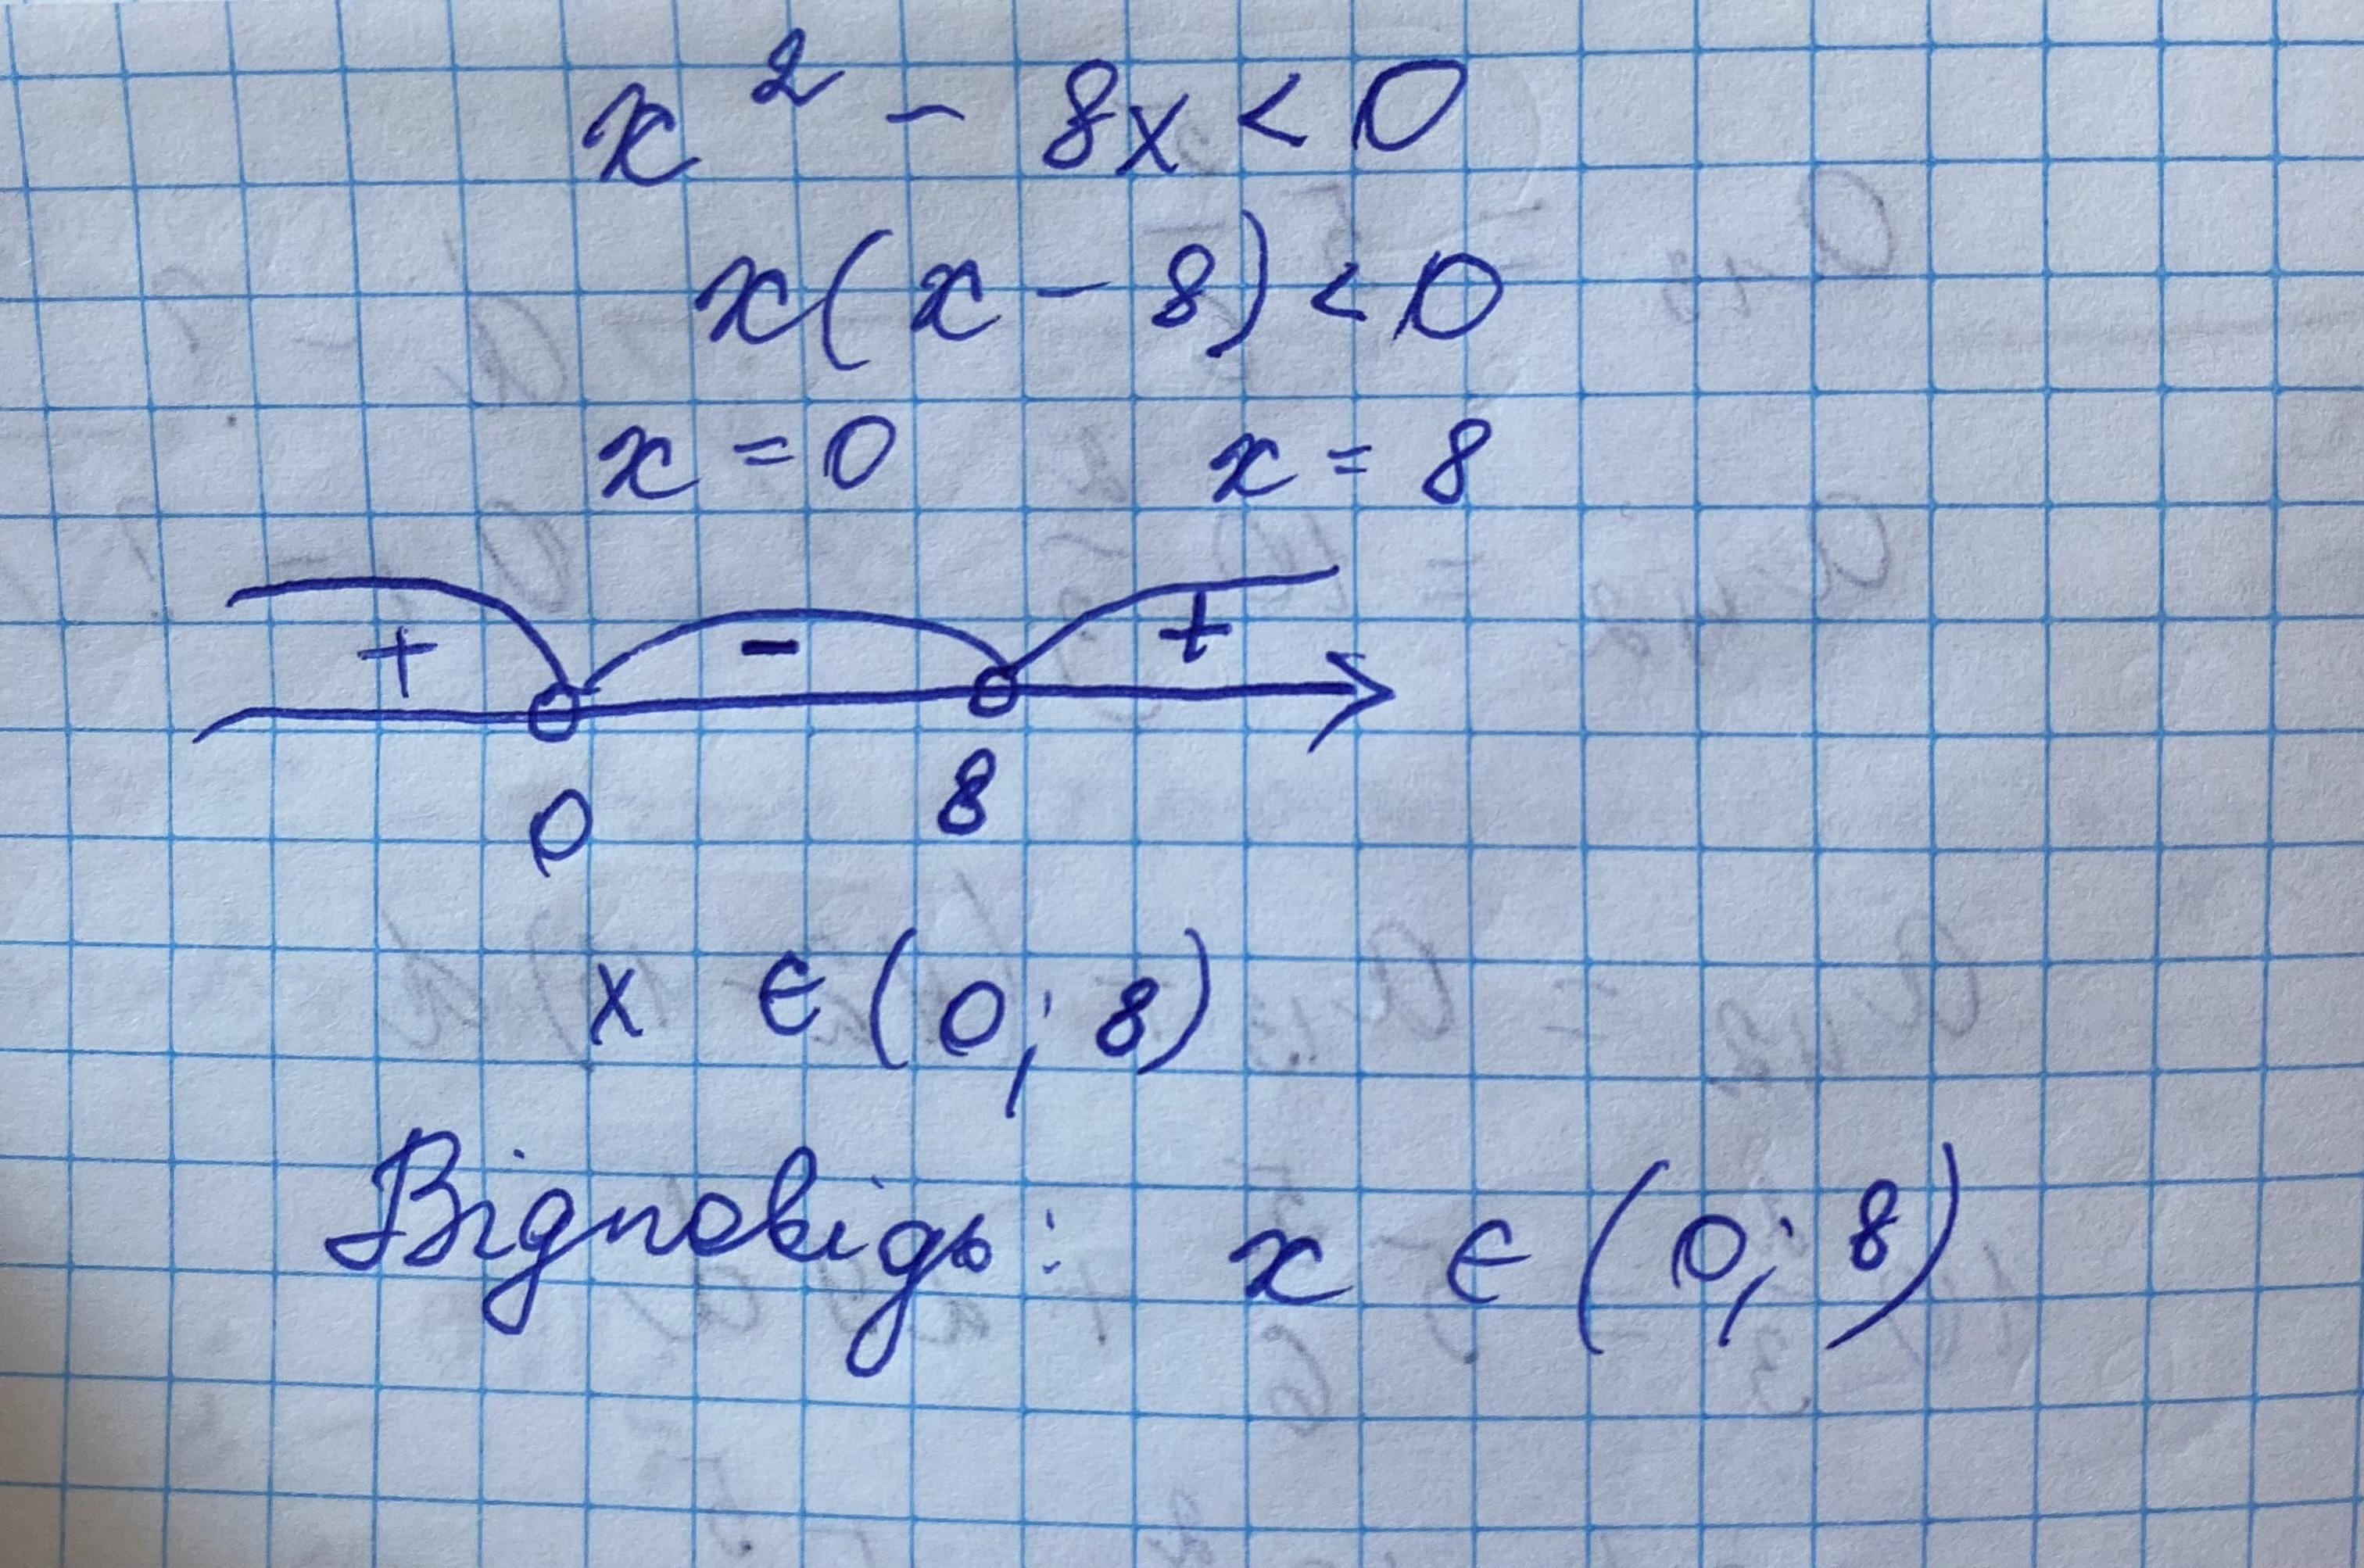 x² - 8x < 0
x(x - 8) < 0
x = 0 x = 8
+ - +
0 8
x ∈ (0; 8)
Відповідь: x ∈ (0; 8)